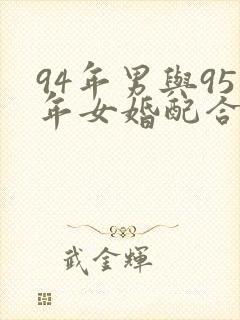 94年男與95
年女婚配合
武金輝